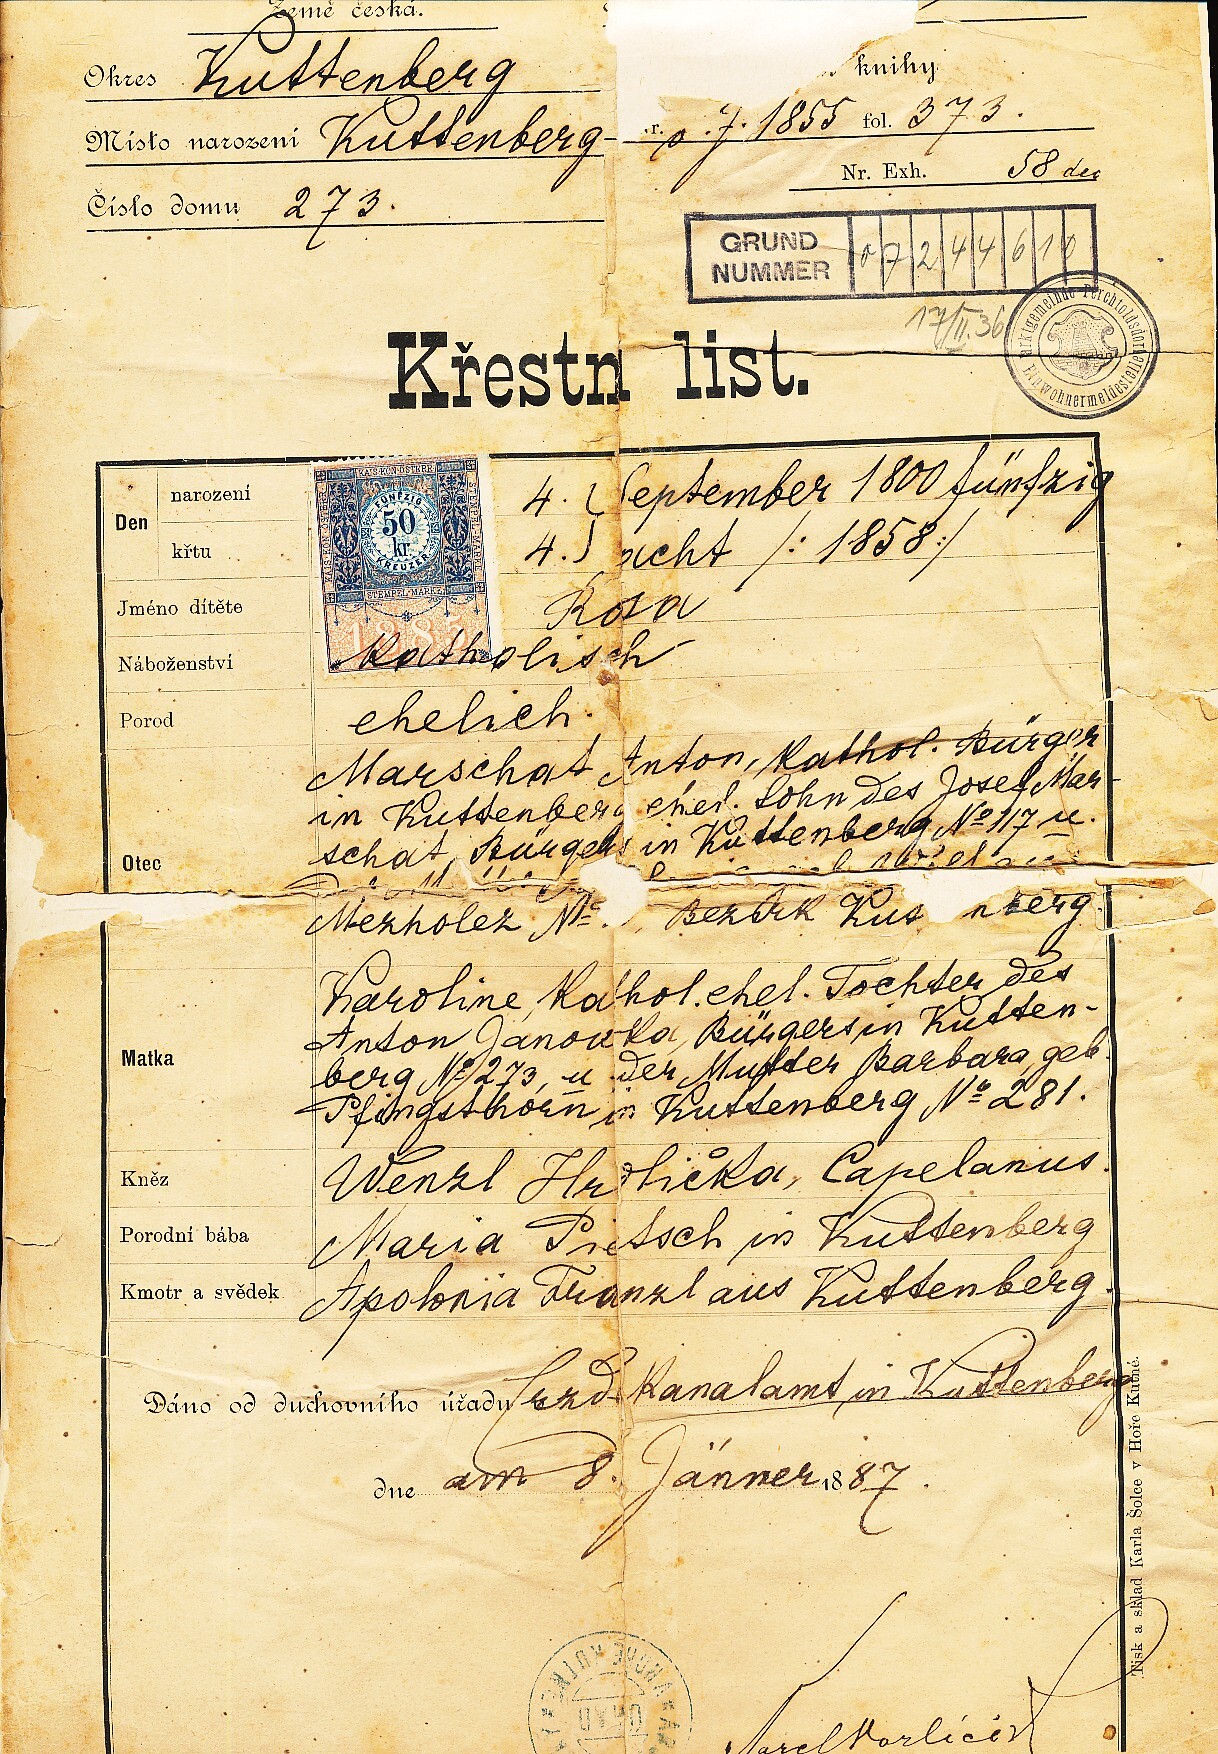 Země česká.
Okres Kuttenberg
knihy
Místo narození Kuttenberg
r. o. J. 1855 fol. 373.
Nr. Exh. 58 dec
Číslo domu 273.
GRUND
NUMMER 07244610
17/II.36
Marktgemeinde Perchtoldsdorf
Einwohnermeldestelle
Křestn list.
KAIS. KÖN. ÖSTERR.
STEMPEL-MARKE
FÜNFZIG
50
kr.
KREUZER
STEMPEL-MARKE
1885
Den narození 4. September 1800 fünfzig
křtu 4. acht /: 1858 :/
Jméno dítěte Rosa
Náboženství Katholisch
Porod ehelich.
Otec
Marschat Anton, Kathol. Bürger
in Kuttenberg ehel. Sohn des Josef Mar-
schat, Bürgers in Kuttenberg No 117 u.
Mezholez No. Bezirk Kut nberg.
Matka
Karoline, Kathol. ehel. Tochter des
Anton Janowka, Bürgers in Kutten-
berg No 273, u. der Mutter Barbara, geb.
Pfingsthorn in Kuttenberg No 281.
Kněz Wenzl Hrdlička, Capelanus.
Porodní bába Maria Pietsch in Kuttenberg
Kmotr a svědek Apolonia Franzl aus Kuttenberg.
Dáno od duchovního úřadu Erzd. Kanalamt in Kuttenberg
dne am 8. Jänner 1887.
Tisk a sklad Karla Šolce v Hoře Kutné.